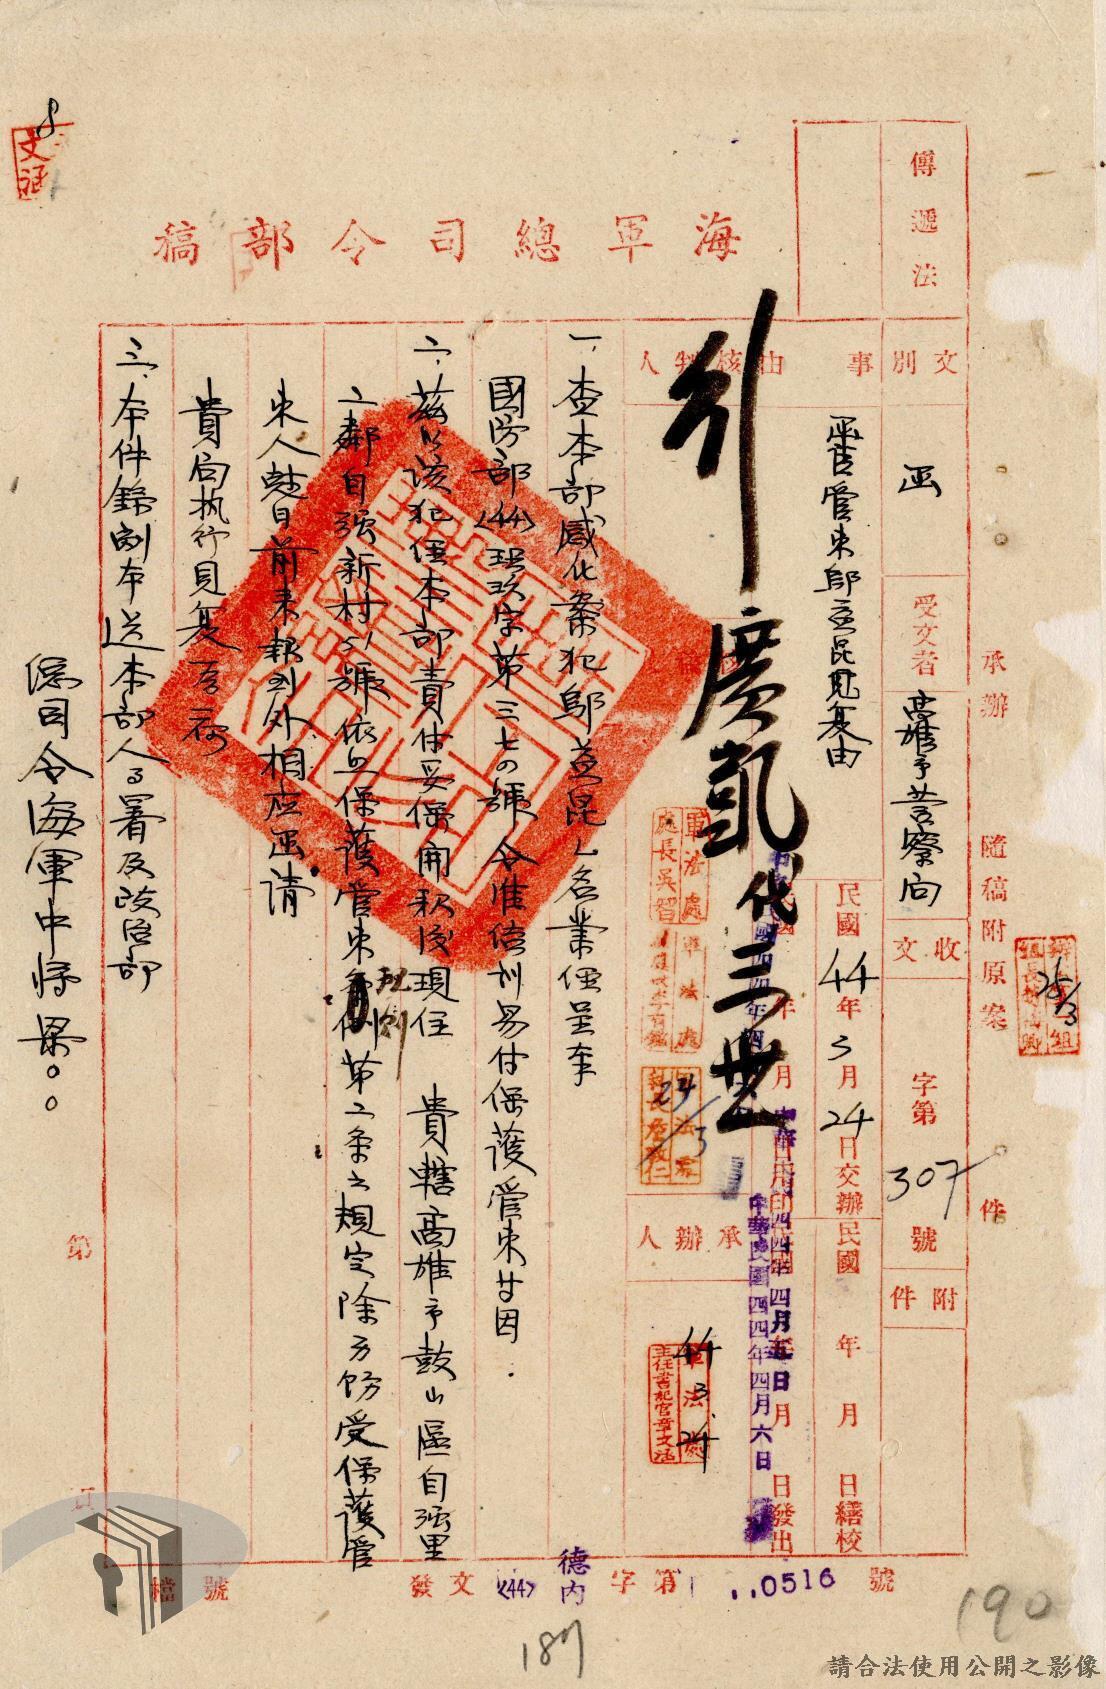 海軍總司令部稿
傳遞法
文別
函
受文者
高雄市警察局
收文
字第
307
號
附件
承辦
隨稿附原案
件
事由
函管束鄔益昆見复由
民國44年3月24日交辦
民國 年 月 日繕校
年 月 日發出
中華民國四四年四月六日
核判人
廣凱代
承辦人
44.3.24
24/3
25/3
一、查本部感化案犯鄔益昆乙名業經呈奉
國防部(44)理玖字第三七〇號令准結訓易付保護管束廿因.
二、茲以該犯經本部責付妥保開釈後現住 貴轄高雄市鼓山區自強里
二鄰自強新村51號依照保護管束規則第二条之規定除另飭受保護管
束人尅日前來報到外相应函请
貴局执行見复為荷
三、本件錄副本送本部人事署及政治部
總司令海軍中將梁○○
檔號
發文
(44)
德內
字第
0516
號
187
190
文涵
請合法使用公開之影像